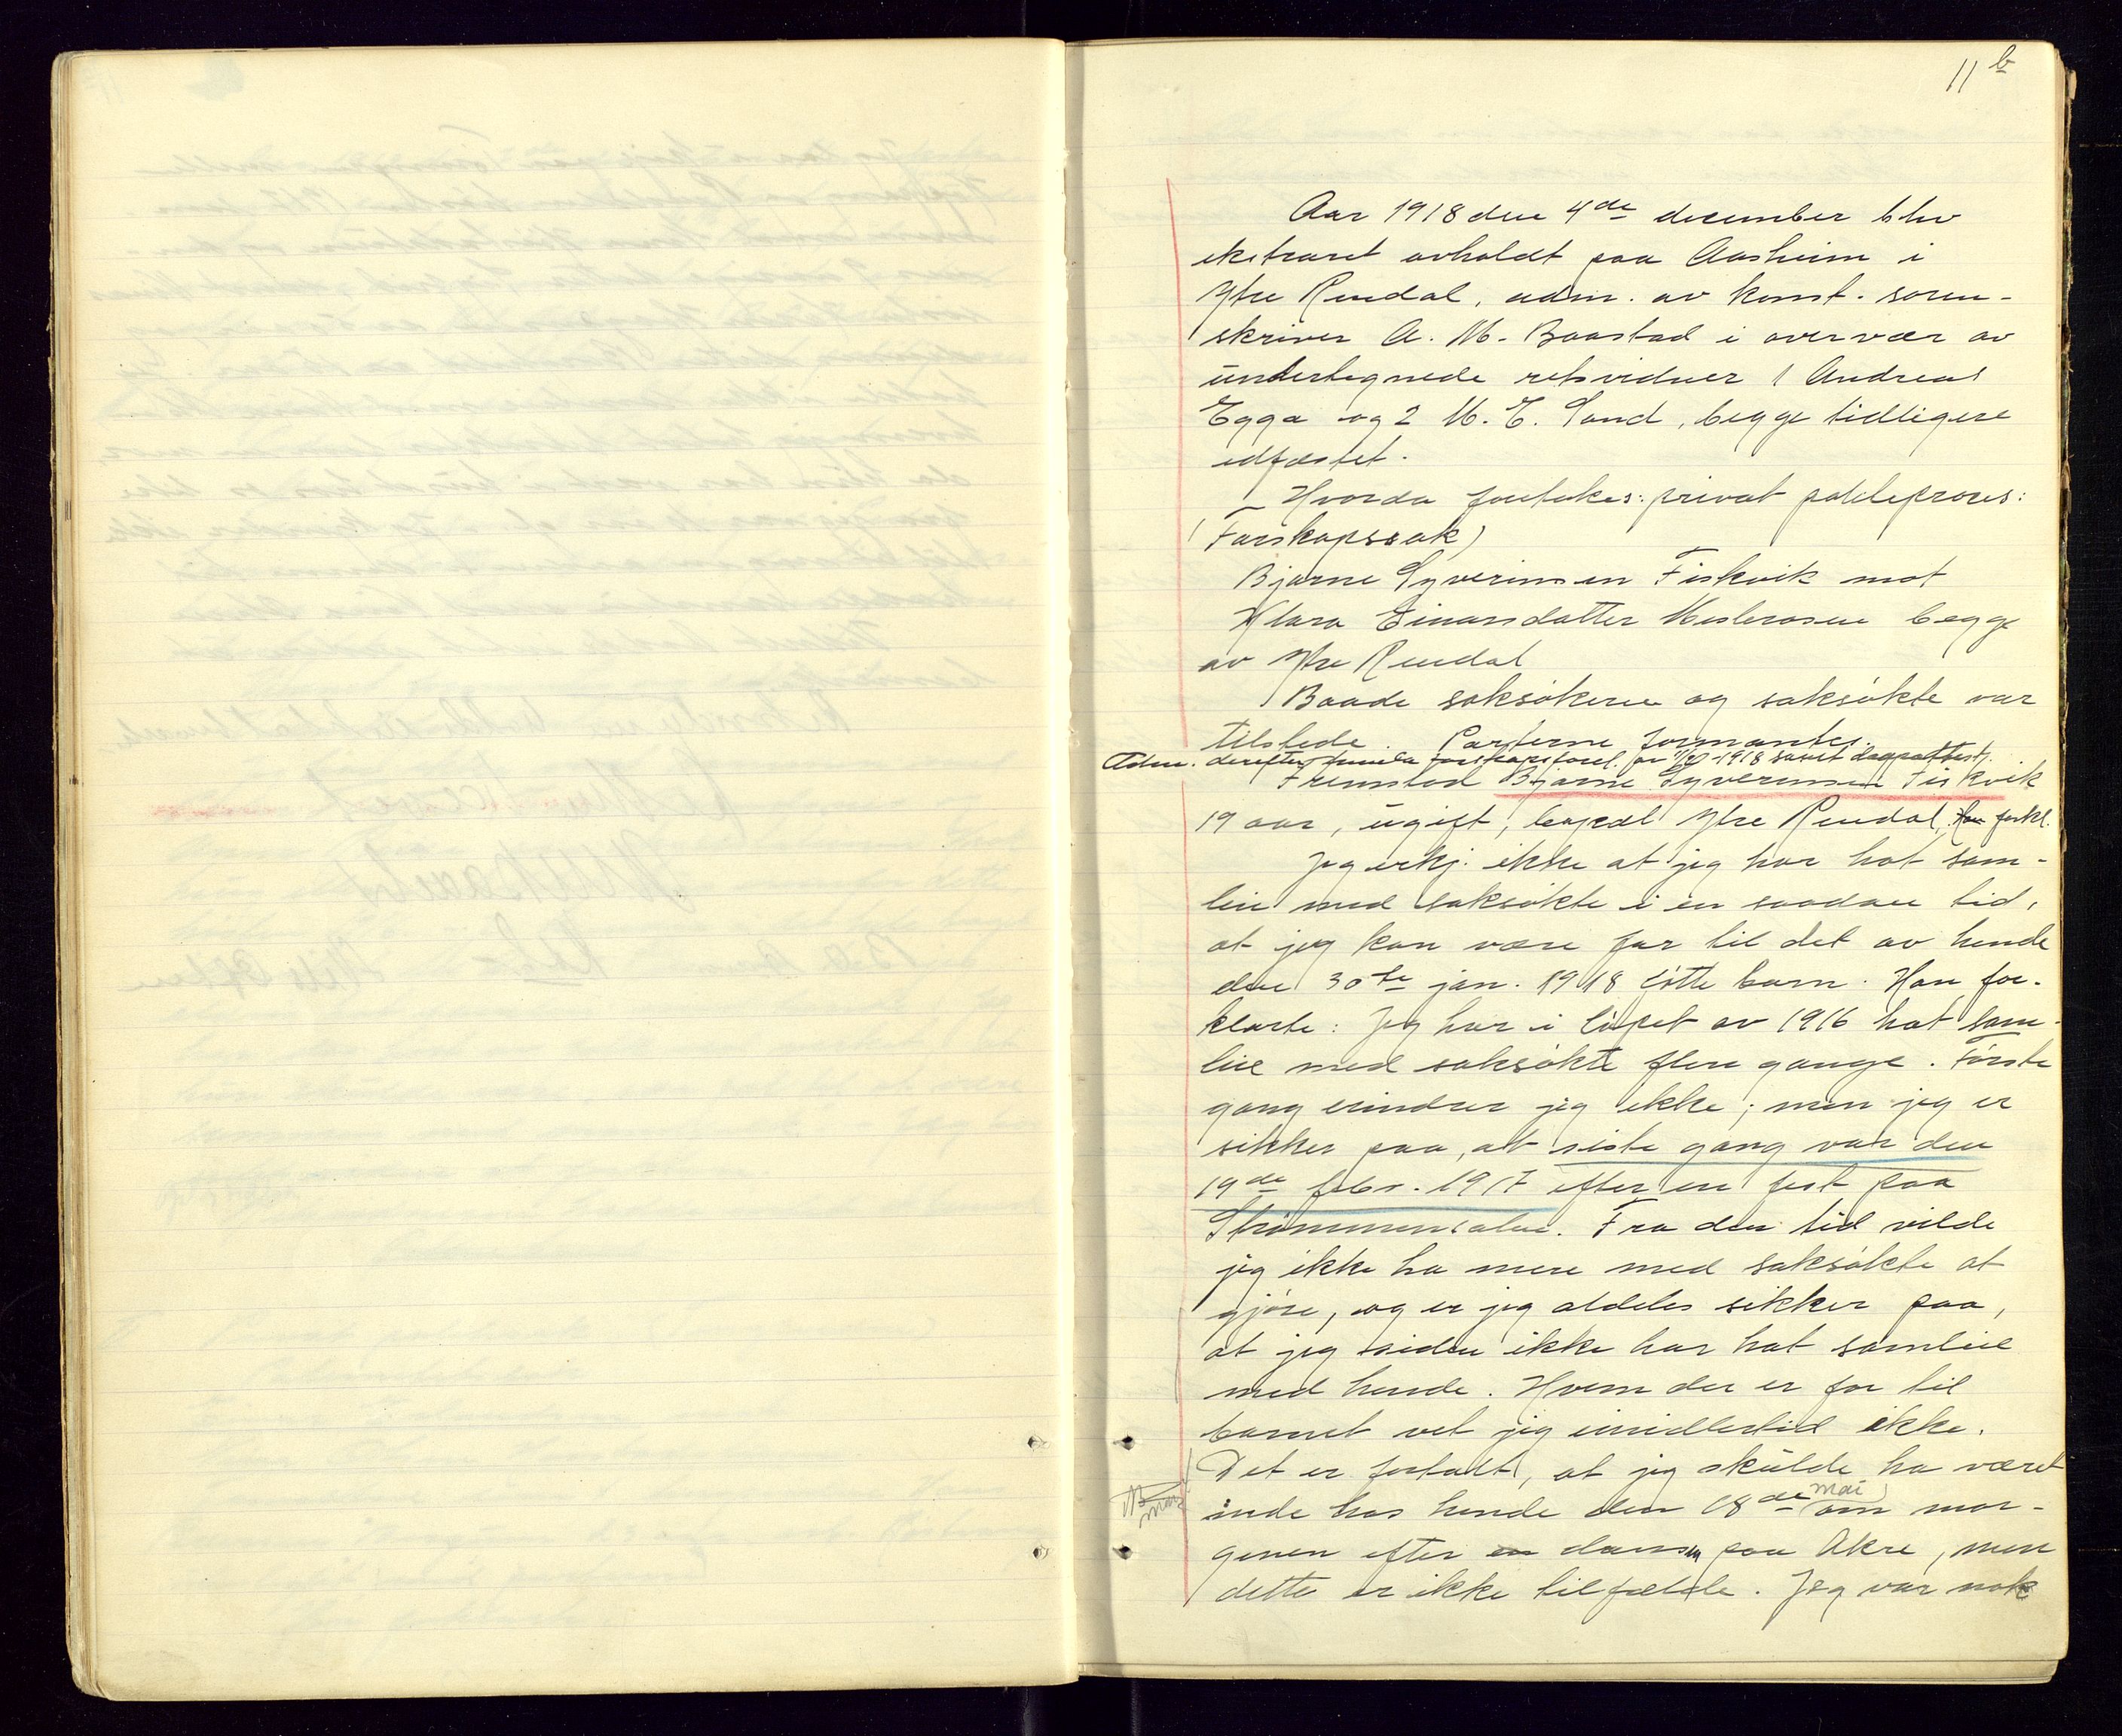 11 b
Aar 1918 den 4de december blev
ekstraret avholdt paa Aasheim i
Ytre Rendal, adm. av konst. soren-
skriver A. M. Baastad i overvær av
undertegnede retsvidner 1 Andreas
Egga og 2 M. E. Sand, begge tidligere
edfæstet.
Hvorda foretokes: privat politiproces:
(Farskapssak)
Bjarne Syverinsen Fiskvik mot
Klara Einarsdatter Mesterosen begge
av Ytre Rendal
Baade saksøkeren og saksøkte var
tilstede. Parterne formantes.
Adm. derefter farskapsforel. av 1918 samt daapsattest.
Fremstod Bjarne Syverinsen Fiskvik
19 aar, ugift, bopæl Ytre Rendal. Han forkl.
Jeg erkj. ikke at jeg har hat sam-
leie med saksøkte i en saadan tid,
at jeg kan være far til det av hende
den 30te jan. 1918 føtte barn. Han for-
klarte: Jeg har i løpet av 1916 hat sam-
leie med saksøkte flere gange. Første
gang erindrer jeg ikke; men jeg er
sikker paa, at siste gang var den
19de febr. 1917 efter en fest paa
Strømmensalen. Fra den tid vilde
jeg ikke ha mere med saksøkte at
gjøre, og er jeg aldeles sikker paa,
at jeg siden ikke har hat samleie
med hende. Hvem der er far til
barnet vet jeg imidlertid ikke.
Det er fortalt, at jeg skulde ha været
inde hos hende den 18de mai om mor-
genen efter en dansen paa Akre, men
dette er ikke tilfælde. Jeg var nok